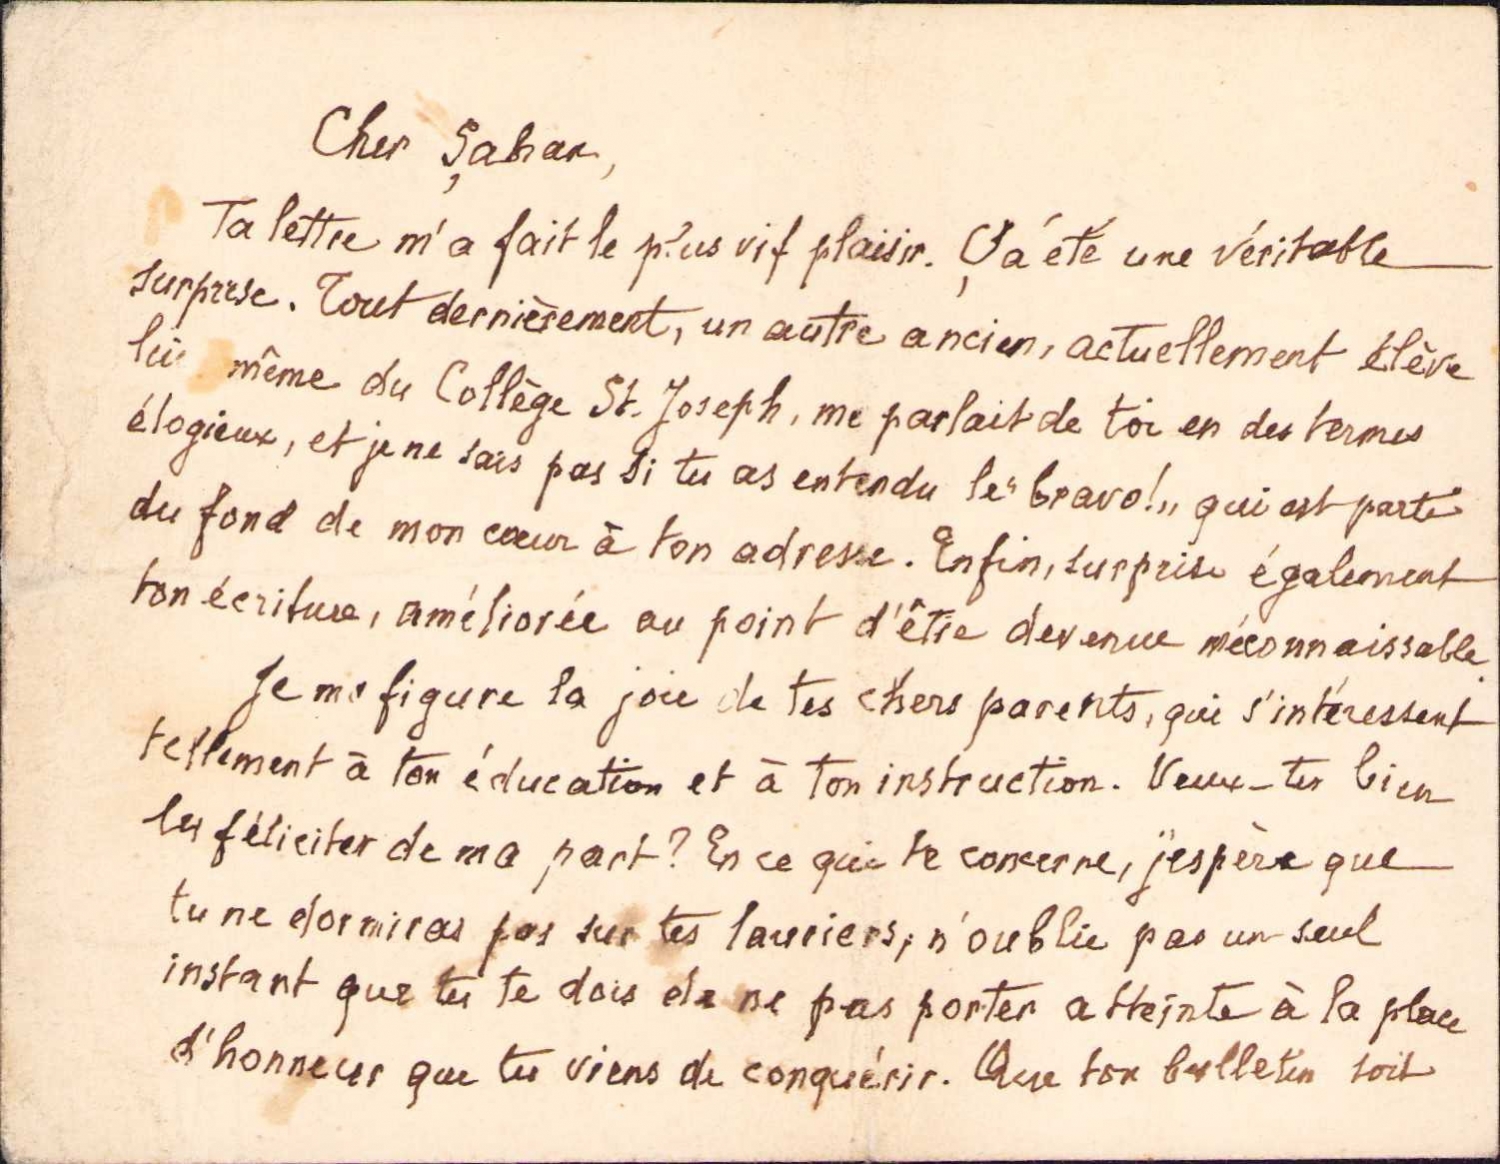 Cher Şahan,
Ta lettre m'a fait le plus vif plaisir. Ç'a été une véritable
surprise. Tout dernièrement, un autre ancien, actuellement élève
lui même du Collège St. Joseph, me parlait de toi en des termes
élogieux, et je ne sais pas si tu as entendu le "bravo!" qui est parti
du fond de mon cœur à ton adresse. Enfin, surprise également
ton écriture, améliorée au point d'être devenue méconnaissable.
Je me figure la joie de tes chers parents, qui s'intéressent
tellement à ton éducation et à ton instruction. Veux-tu bien
les féliciter de ma part? En ce qui te concerne, j'espère que
tu ne dormiras pas sur tes lauriers; n'oublie pas un seul
instant que tu te dois de ne pas porter atteinte à la place
d'honneur que tu viens de conquérir. Que ton bulletin soit